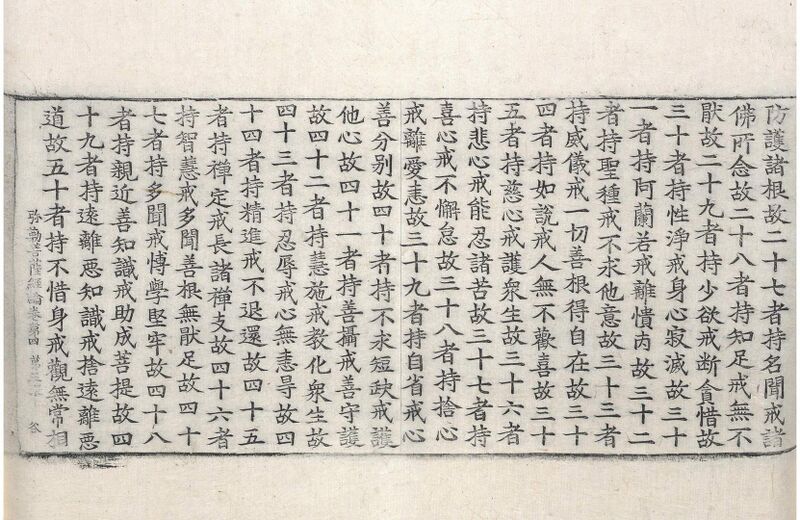 防護諸根故二十七者持名聞戒諸
佛所念故二十八者持知足戒無不
猒故二十九者持少欲戒断貪惜故
三十者持性淨戒身心寂滅故三十
一者持阿蘭若戒離憒丙故三十二
者持聖種戒不求他意故三十三者
持威儀戒一切善根得自在故三十
四者持如說戒人無不歡喜故三十
五者持慈心戒護衆生故三十六者
持悲心戒能忍諸苦故三十七者持
喜心戒不懈怠故三十八者持捨心
戒離愛恚故三十九者持自省戒心
善分別故四十者持不求短缺戒護
他心故四十一者持善攝戒善守護
故四十二者持慧施戒教化衆生故
四十三者持忍辱戒心無恚㝵故四
十四者持精進戒不退還故四十五
者持禪定戒長諸禪支故四十六者
持智慧戒多聞善根無猒足故四十
七者持多聞戒愽學堅牢故四十八
者持親近善知識戒助成菩提故四
十九者持遠離惡知識戒捨遠離惡
道故五十者持不惜身戒觀無常相
弥勒菩薩經論卷第四